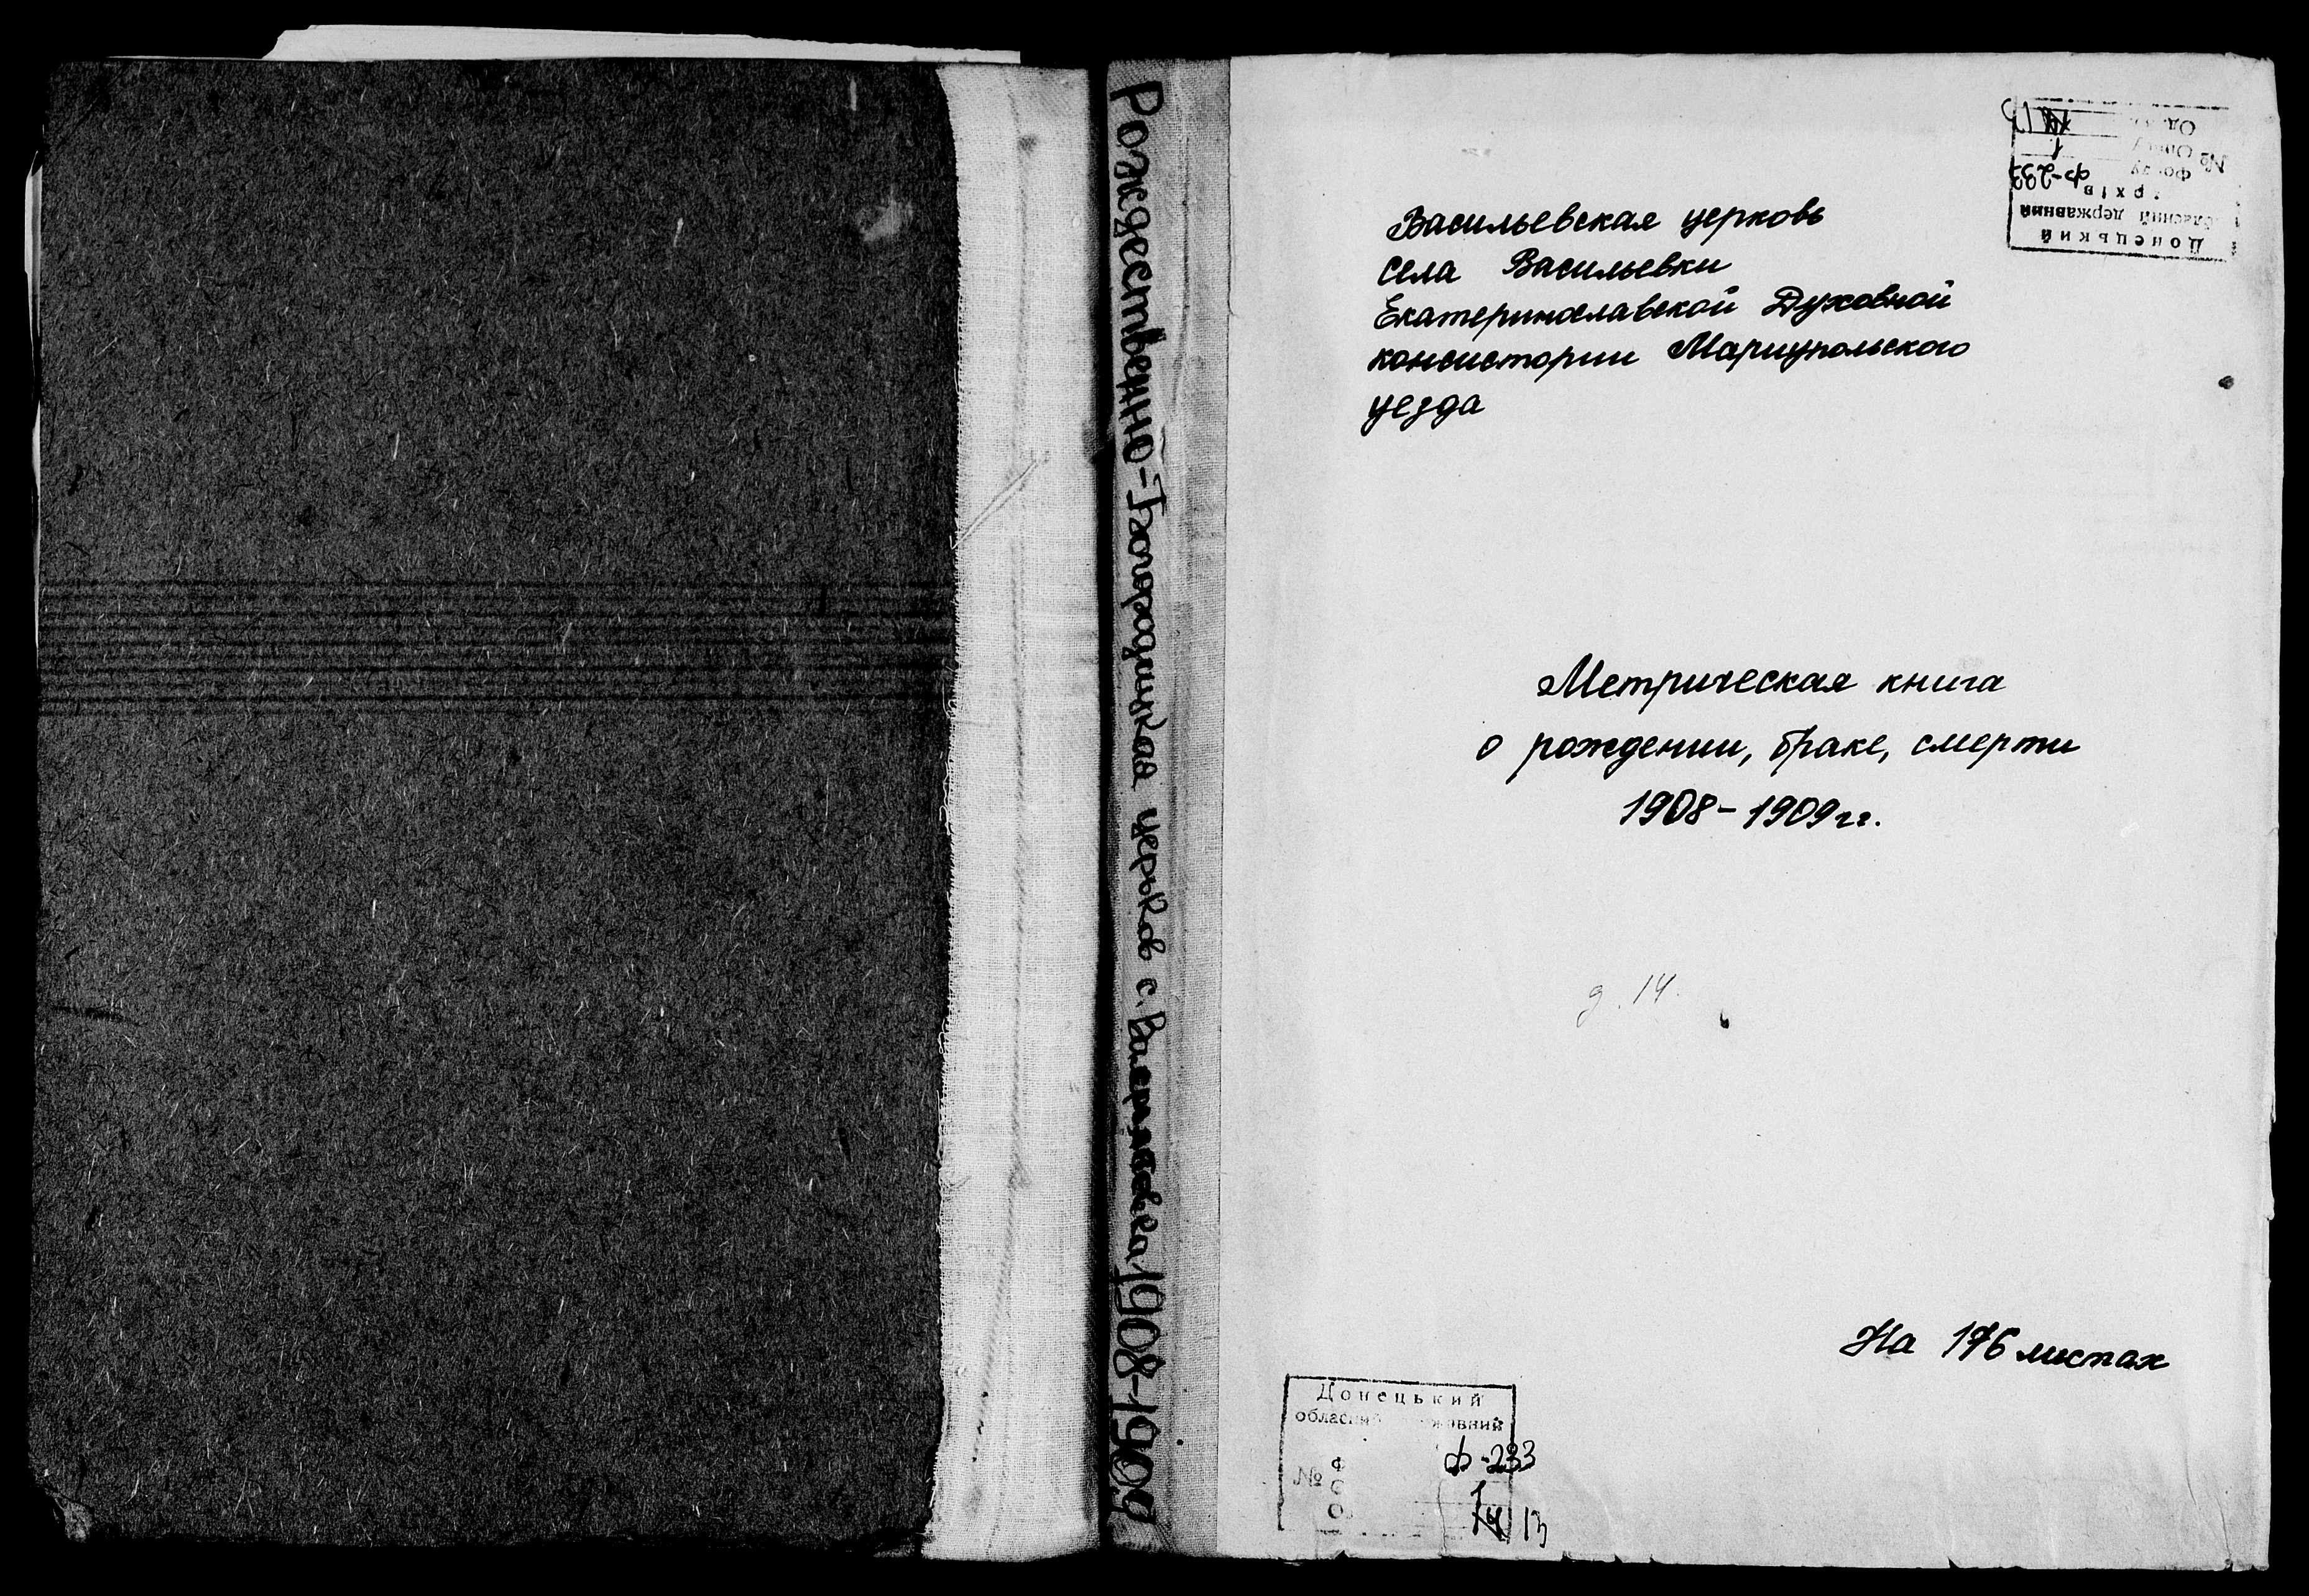 Рождественно-Богородицкая церьковь с. 1908-1909
Донецький
обласний державний
архів
Фонду Ф-233
№ Опису 1
Од. 13
Васильевская церковь
села Васильевки
Екатеринославской Духовной
консистории Мариупольского
уезда
Метрическая книга
о рождении, браке, смерти
1908-1909 гг.
д. 14.
На 176 листах
Донецький
обласний державний
Ф Ф-233
№ О 1
О 14 13